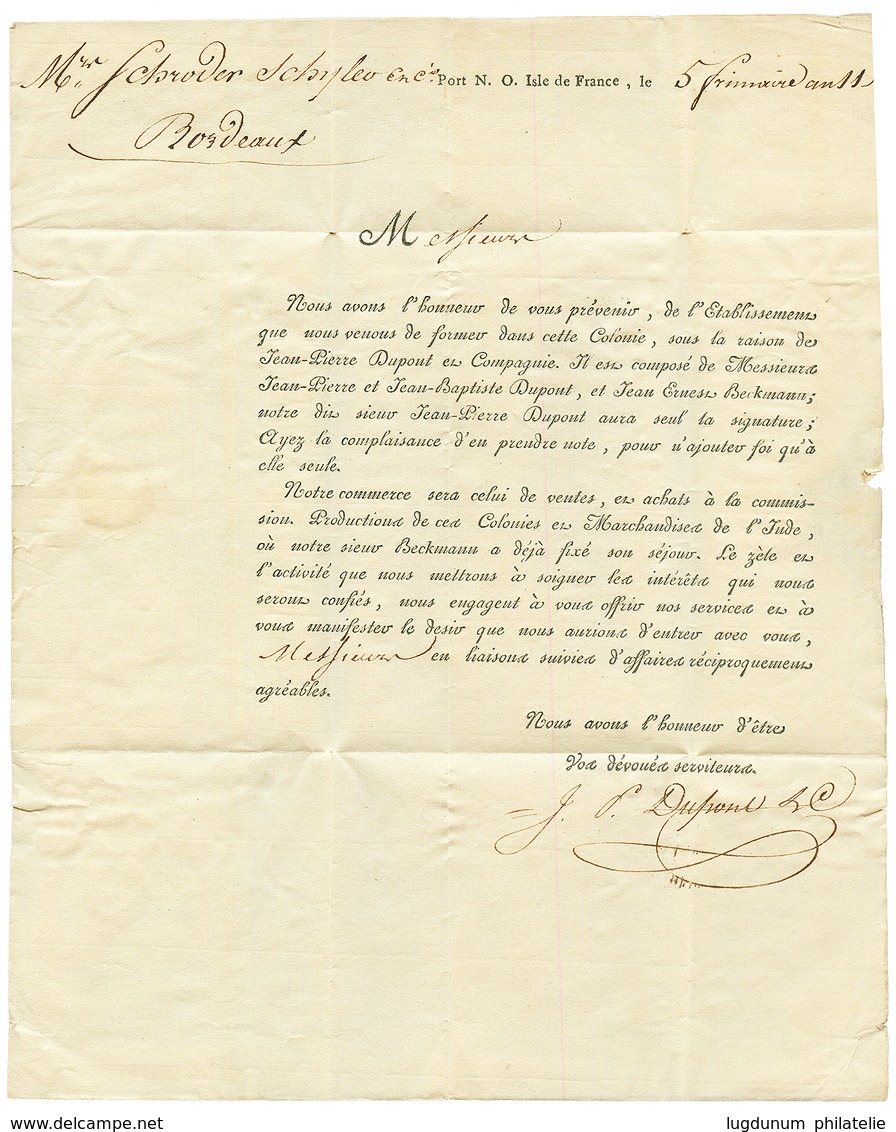 Mrs Schroder Schyler en cie Port N. O. Isle de France , le 5 frimaire an 11
Bordeaux
Messieurs
Nous avons l'honneur de vous prévenir , de l'Etablissement
que nous venons de former dans cette Colonie , sous la raison de
Jean-Pierre Dupont et Compagnie. Il est composé de Messieurs
Jean-Pierre et Jean-Baptiste Dupont , et Jean Ernest Beckmann ;
notre dit sieur Jean-Pierre Dupont aura seul la signature ;
Ayez la complaisance d'en prendre note , pour n'ajouter foi qu'à
elle seule.
Notre commerce sera celui de ventes , et achats à la commis-
sion. Productions de ces Colonies et Marchandises de l'Inde ,
où notre sieur Beckmann a déjà fixé son séjour. Le zèle et
l'activité que nous mettrons à soigner les intérêts qui nous
seront confiés , nous engagent à vous offrir nos services et à
vous manifester le desir que nous aurions d'entrer avec vous ,
Messieurs en liaisons suivies d'affaires réciproquement
agréables.
Nous avons l'honneur d'être
Vos dévoués serviteurs.
J. P. Dupont & C
www.delcampe.net
lugdunum philatelie